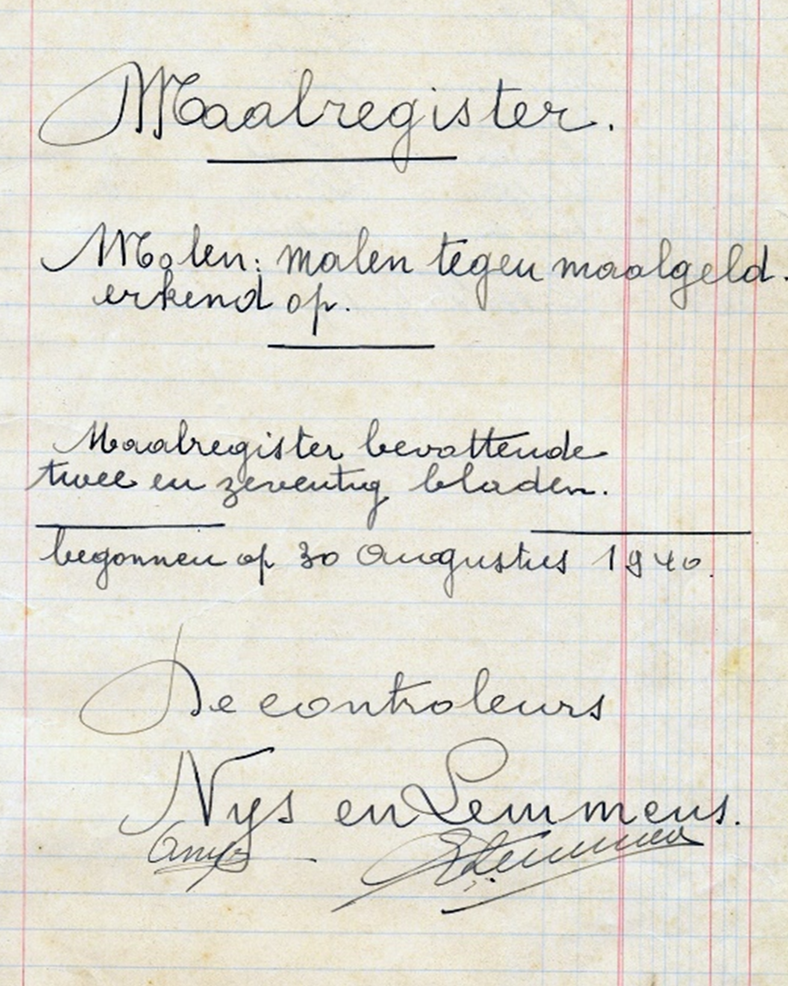 Maalregister.
Molen: malen tegen maalgeld.
erkend op.
Maalregister bevattende
twee en zeventig bladen.
begonnen op 30 Augustus 1940.
De controleurs
Nys en Lemmens.